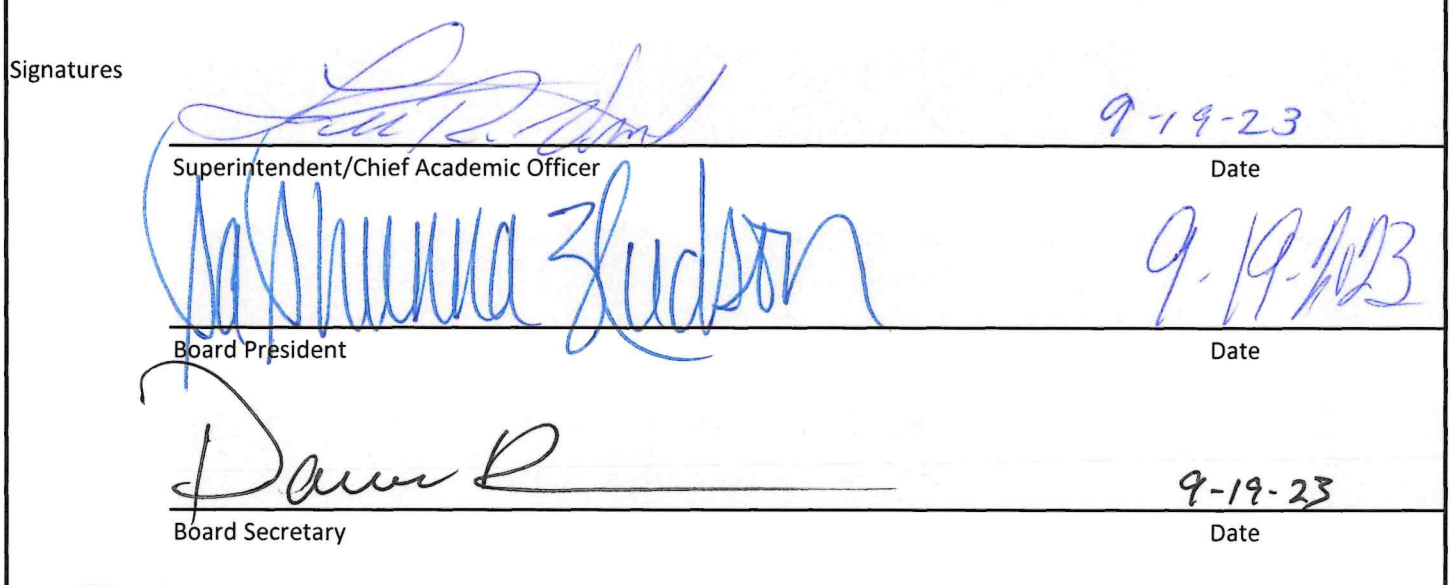 Signatures
9-19-23
Superintendent/Chief Academic Officer Date
Hudson 9-19-2023
Board President Date
9-19-23
Board Secretary Date